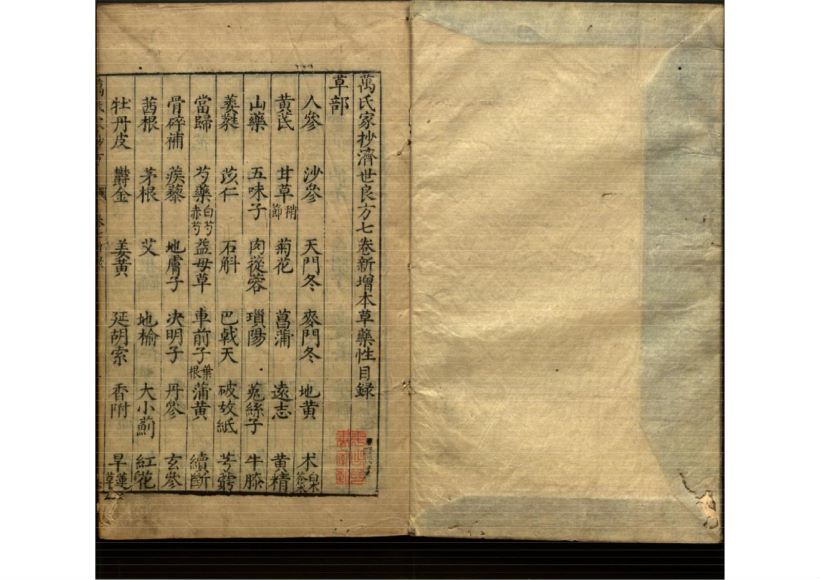 萬氏家抄濟世良方七卷新增本草藥性目録
草部
人參 沙參 天門冬 麥門冬 地黄 术 白术 蒼术
黄芪 甘草 稍 節 菊花 菖蒲 遠志 黄精
山藥 五味子 肉蓯蓉 瑣陽 菟絲子 牛膝
葳蕤 苡仁 石斛 巴戟天 破故紙 芎藭
當歸 芍藥 白芍 赤芍 益母草 車前子 葉 根 蒲黄 續斷
骨碎補 蒺藜 地膚子 决明子 丹參 玄參
茜根 茅根 艾 地榆 大小薊 紅花
牡丹皮 欝金 姜黄 延胡索 香附 旱蓮草